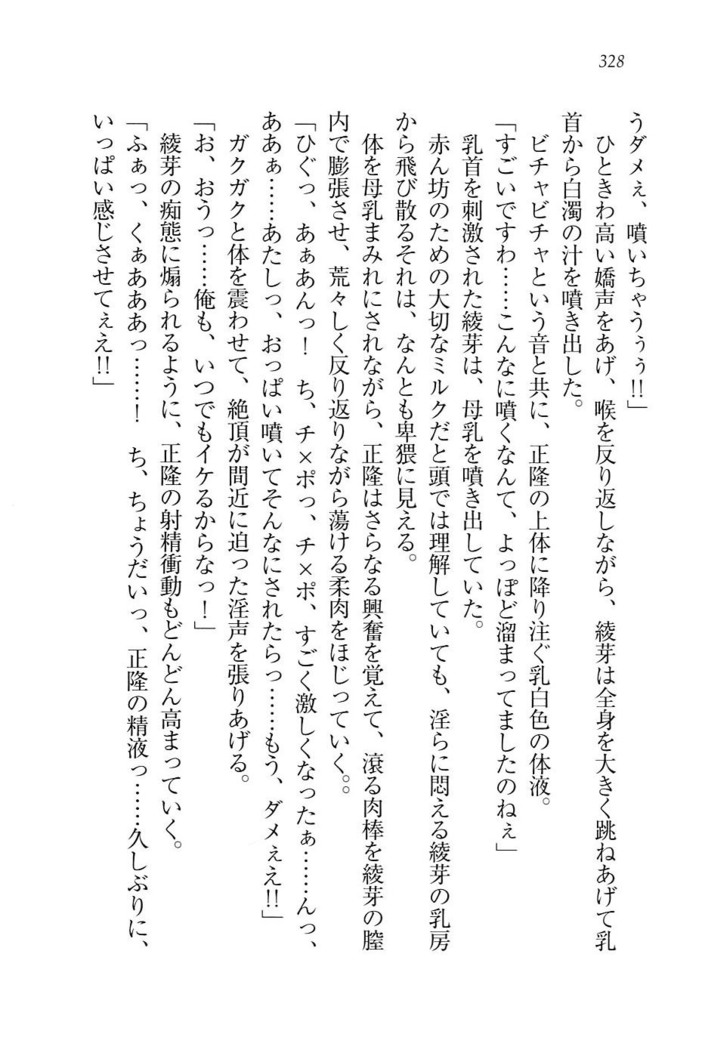 328
うダメぇ、噴いちゃうぅぅ!!」
　ひときわ高い嬌声をあげ、喉を反り返しながら、綾芽は全身を大きく跳ねあげて乳
首から白濁の汁を噴き出した。
　ビチャビチャという音と共に、正隆の上体に降り注ぐ乳白色の体液。
「すごいですわ……こんなに噴くなんて、よっぽど溜まってましたのねぇ」
　乳首を刺激された綾芽は、母乳を噴き出していた。
　赤ん坊のための大切なミルクだと頭では理解していても、淫らに悶える綾芽の乳房
から飛び散るそれは、なんとも卑猥に見える。
　体を母乳まみれにされながら、正隆はさらなる興奮を覚えて、滾る肉棒を綾芽の膣
内で膨張させ、荒々しく反り返りながら蕩ける柔肉をほじっていく。。
「ひぐっ、あぁあんっ！　ち、チ×ポっ、チ×ポ、すごく激しくなったぁ……んっ、
ああぁ……あたしっ、おっぱい噴いてそんなにされたらっ……もう、ダメぇえ!!」
　ガクガクと体を震わせて、絶頂が間近に迫った淫声を張りあげる。
「お、おうっ……俺も、いつでもイケるからなっ！」
　綾芽の痴態に煽られるように、正隆の射精衝動もどんどん高まっていく。
「ふぁっ、くぁあああっ……！　ち、ちょうだいっ、正隆の精液っ……久しぶりに、
いっぱい感じさせてぇえ!!」